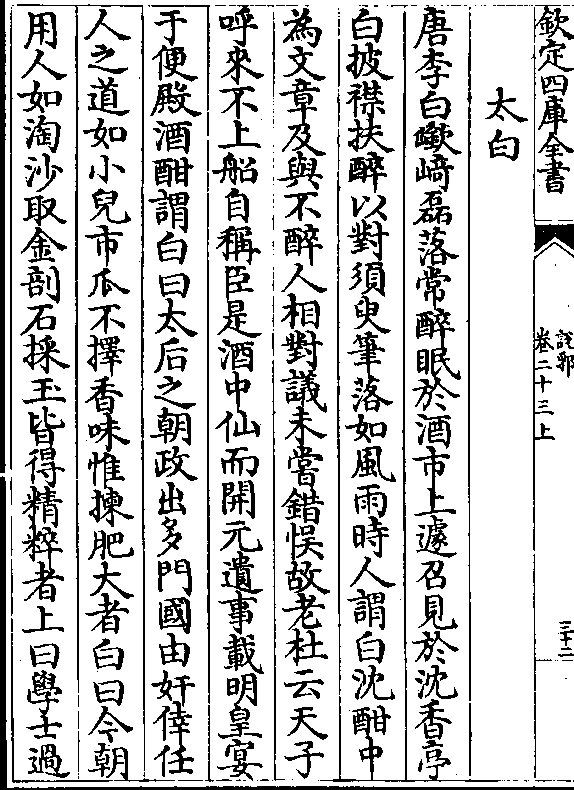 欽定四庫全書
說郛
卷二十三上
三十二
太白
唐李白嶔﨑磊落常醉眠於酒市上遽召見於沈香亭
白披襟扶醉以對須臾筆落如風雨時人謂白沈酣中
為文章及與不醉人相對議未嘗錯悮故老杜云天子
呼來不上船自稱臣是酒中仙而開元遺事載明皇宴
于便殿酒酣謂白曰太后之朝政出多門國由奸倖任
人之道如小兒市瓜不擇香味惟揀肥大者白曰今朝
用人如淘沙取金剖石採玉皆得精粹者上曰學士過